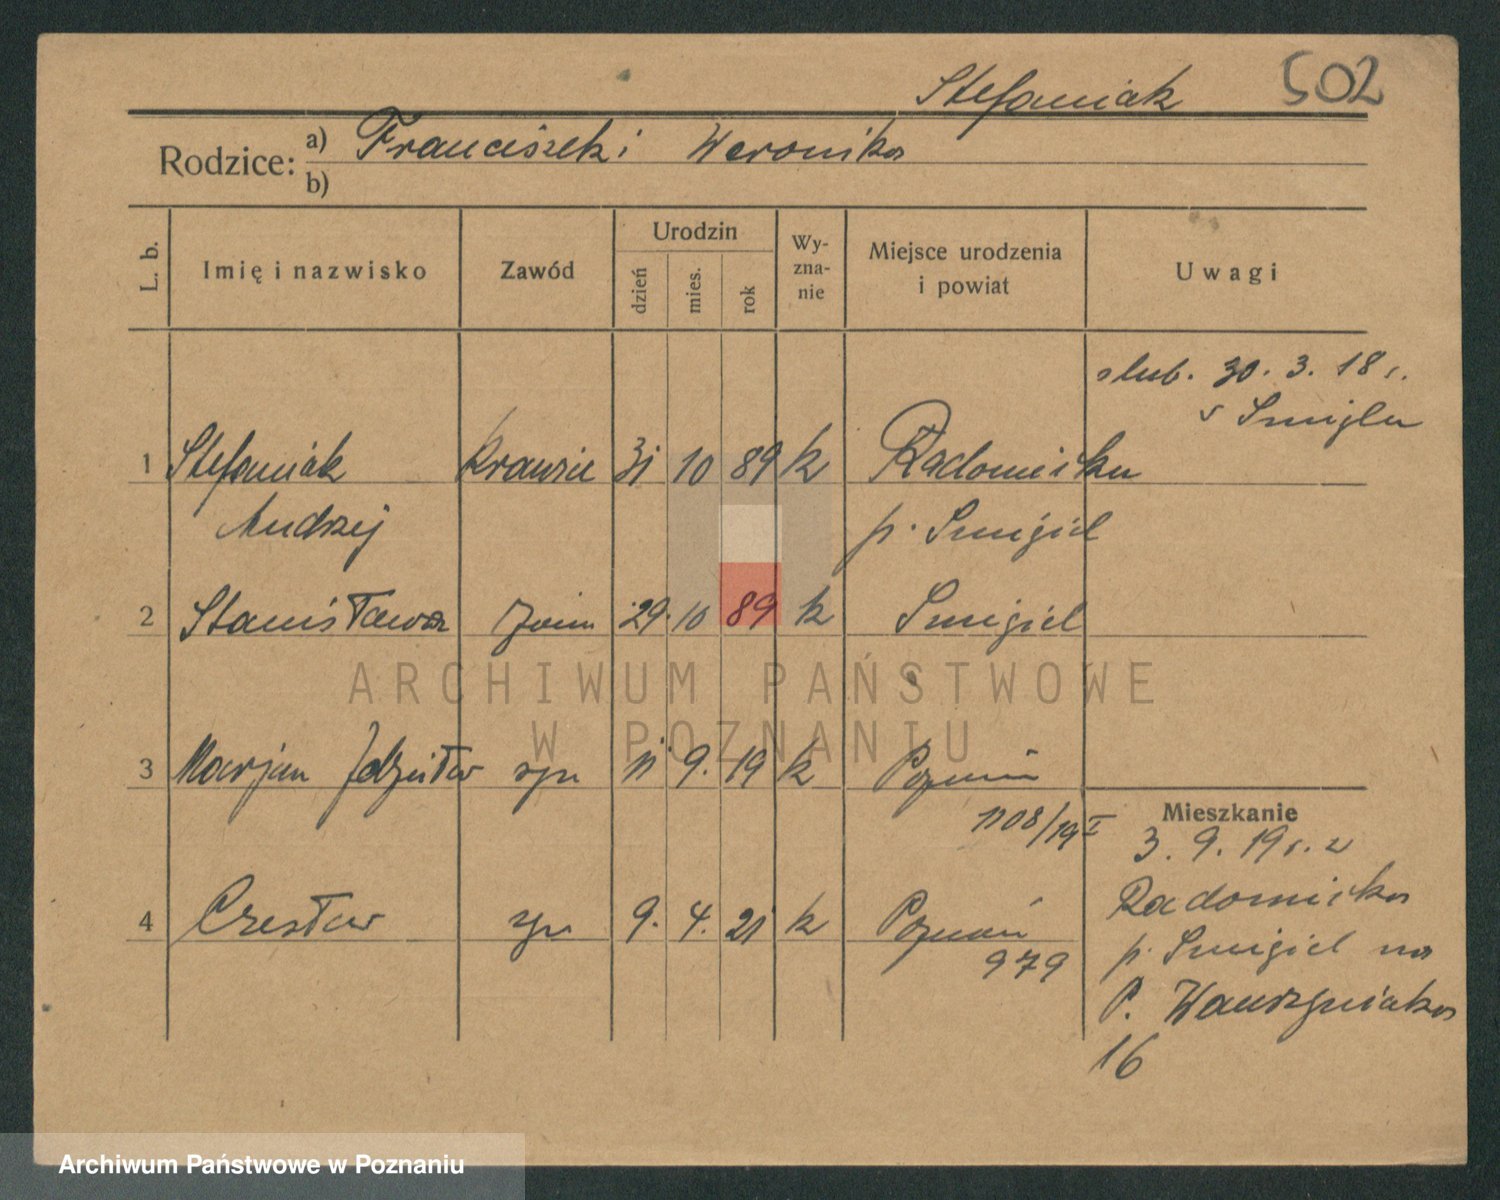 Stefaniak 502
Rodzice: a) Franciszek i Weronika
b)
L. b. Imię i nazwisko Zawód Urodzin dzień mies. rok Wy-zna-nie Miejsce urodzenia i powiat Uwagi
ślub. 30. 3. 18 r.
v Śmiglu
1 Stefaniak Krawiec 31 10 89 k Radomicku
Andrzej p. Śmigiel
2 Stanisława 29. 10 89 k Śmigiel
ARCHIWUM PAŃSTWOWE
W POZNANIU
3 Marjan Zdzisław syn 11 9. 19 k Poznań
1108/19 I
Mieszkanie
3. 9. 19 r. z
Radomicka
4 Czesław syn 9. 4. 21 k Poznań
979
p. Śmigiel na
P. Wawrzyniaka
16
Archiwum Państwowe w Poznaniu